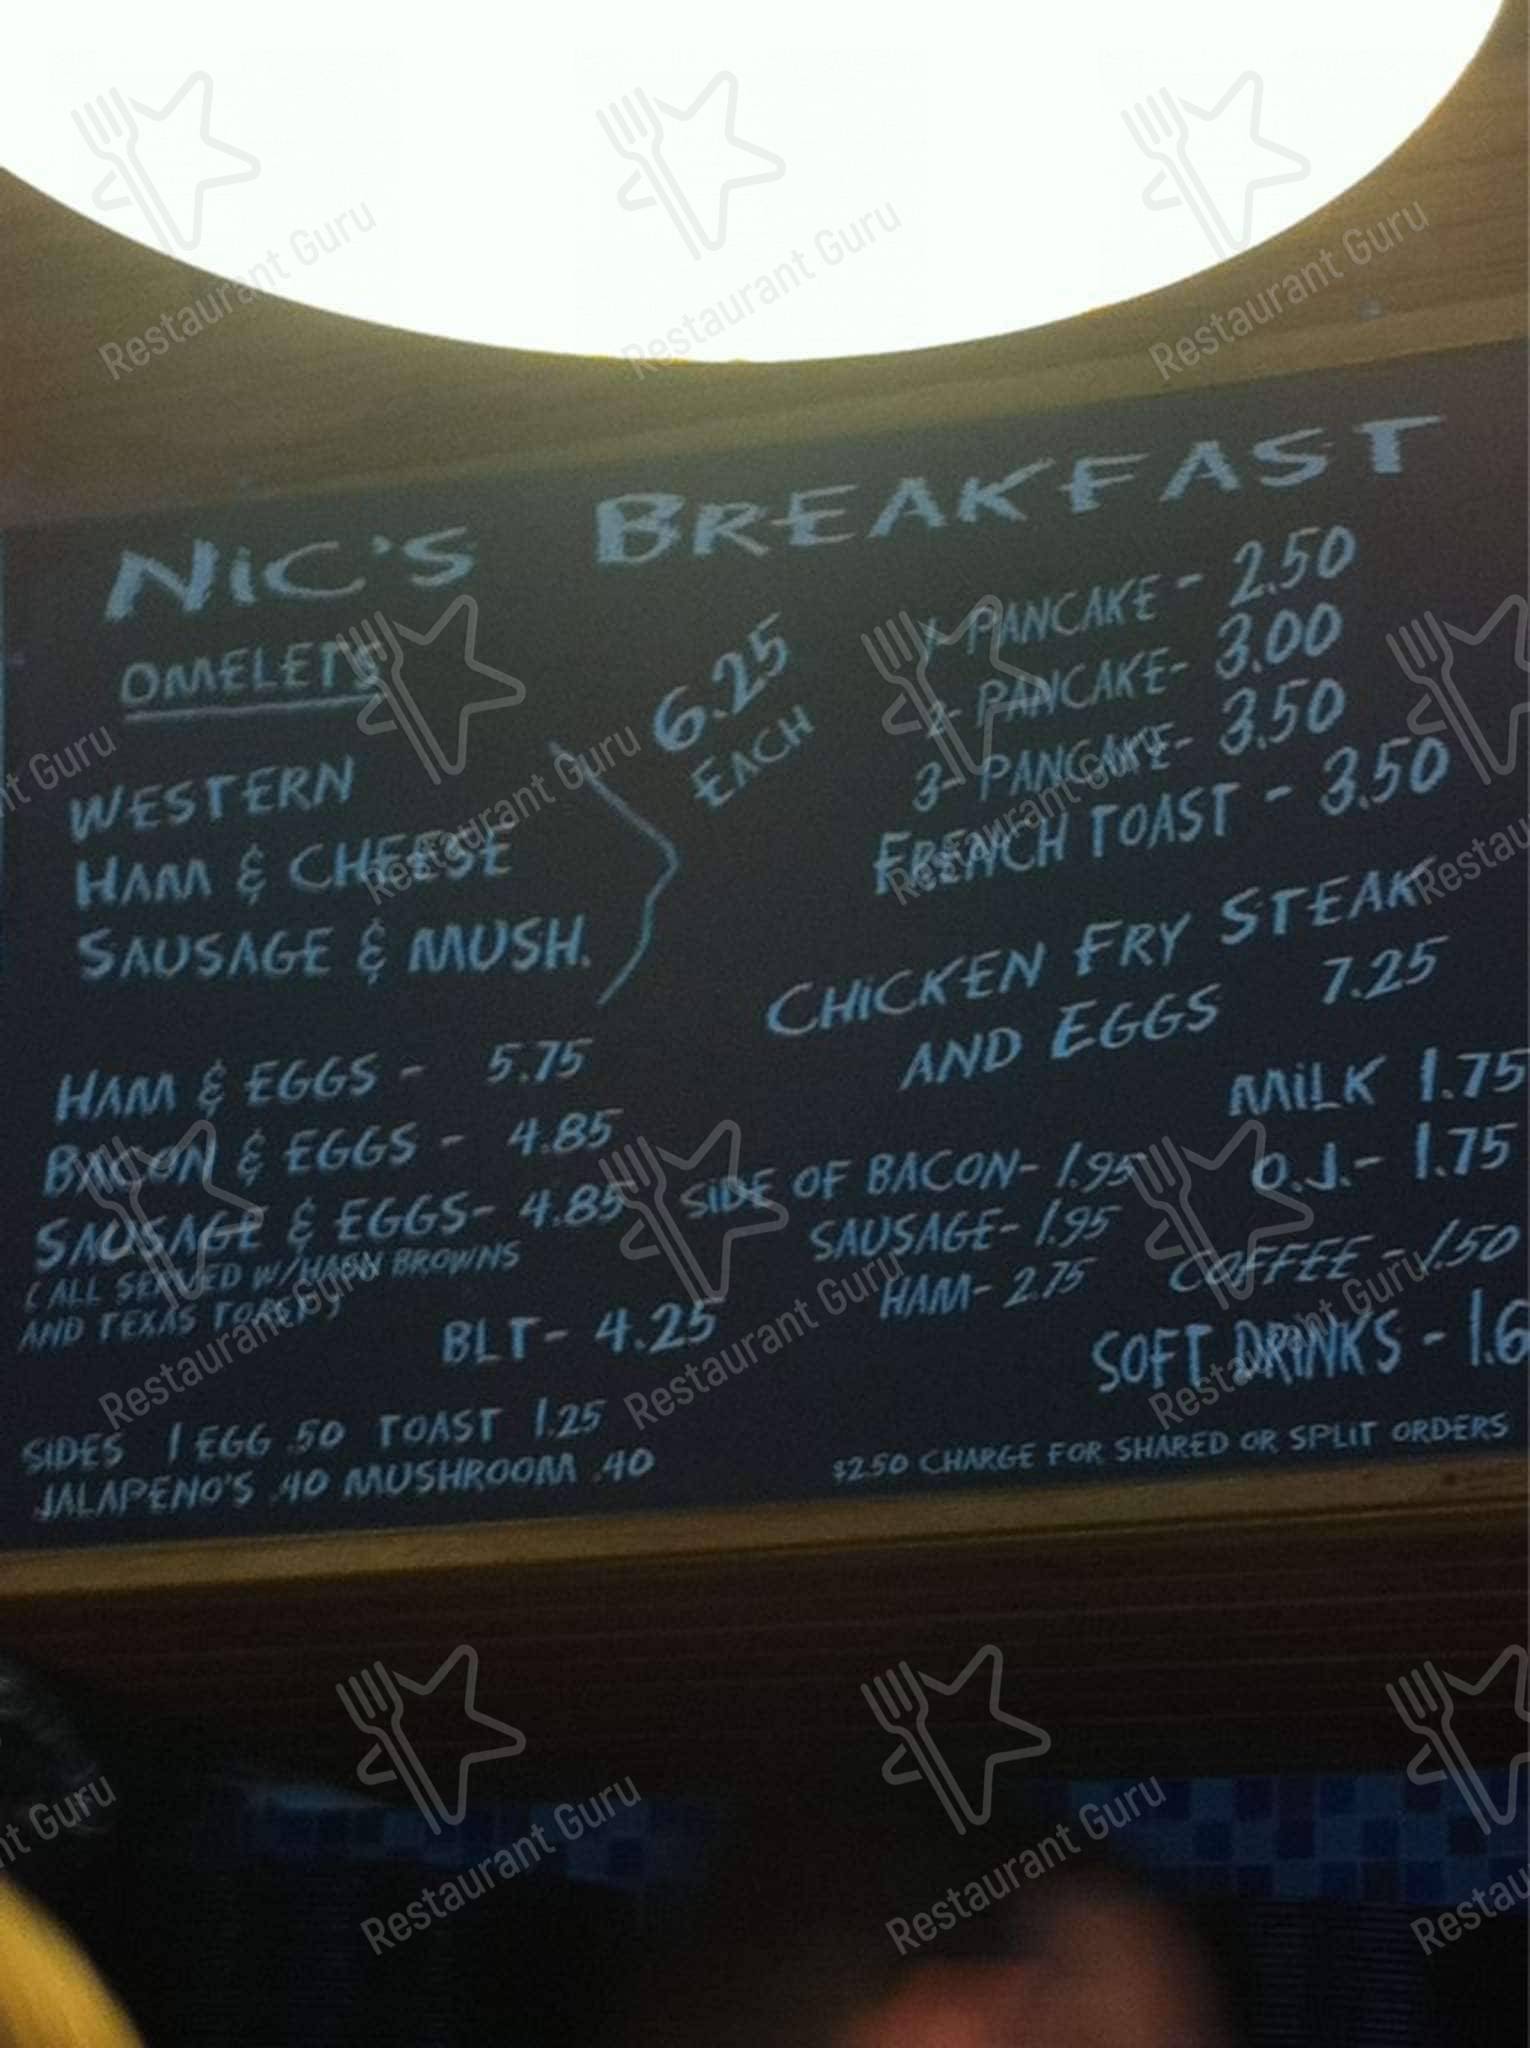 NIC'S BREAKFAST
OMELETS
WESTERN
HAM & CHEESE
SAUSAGE & MUSH.
6.25
EACH
HAM & EGGS - 5.75
BACON & EGGS - 4.85
SAUSAGE & EGGS- 4.85
(ALL SERVED W/HASH BROWNS
AND TEXAS TOAST)
BLT- 4.25
SIDES 1 EGG .50 TOAST 1.25
JALAPENO'S .40 MUSHROOM .40
1- PANCAKE - 2.50
2- PANCAKE- 3.00
3- PANCAKE- 3.50
FRENCH TOAST - 3.50
CHICKEN FRY STEAK
AND EGGS 7.25
SIDE OF BACON- 1.95
SAUSAGE- 1.95
HAM- 2.75
MILK 1.75
O.J.- 1.75
COFFEE - 1.50
SOFT DRINKS - 1.6
$2.50 CHARGE FOR SHARED OR SPLIT ORDERS
Restaurant Guru
Restaurant Guru
Restaurant Guru
Restaurant Guru
Restaurant Guru
Restaurant Guru
Restaurant Guru
Restaurant Guru
Restaurant Guru
Restaurant Guru